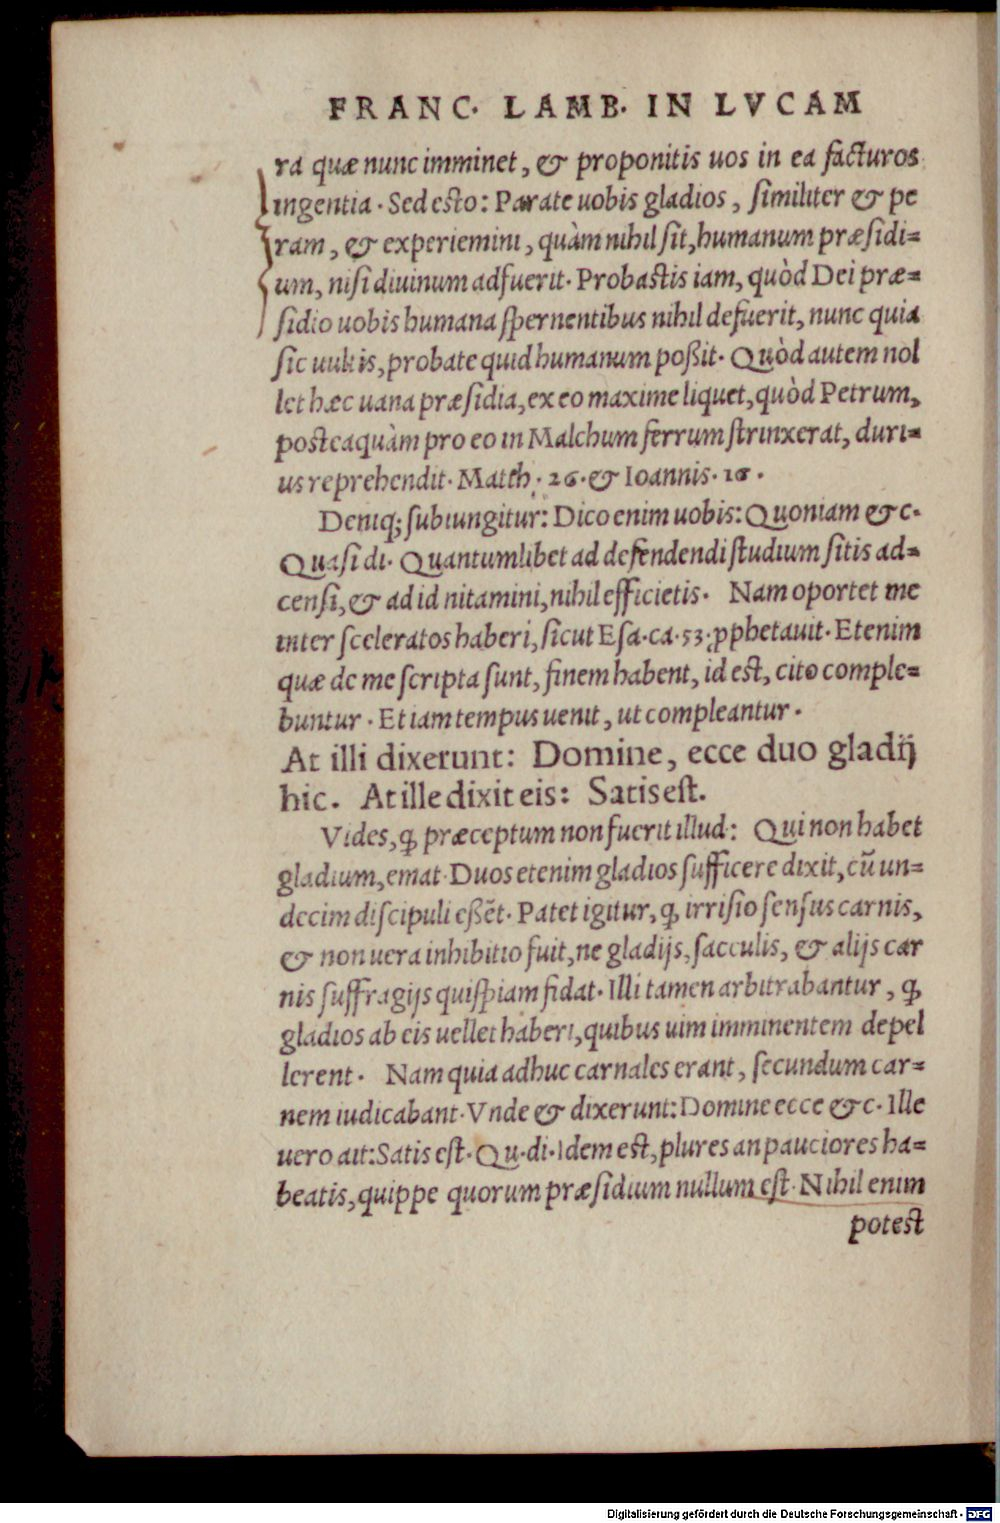 FRANC. LAMB. IN LVCAM
ra quæ nunc imminet, & proponitis uos in ea facturos
ingentia. Sed esto: Parate uobis gladios, similiter & pe
ram, & experiemini, quàm nihil sit, humanum præsidi=
um, nisi diuinum adfuerit. Probastis iam, quòd Dei præ=
sidio uobis humana spernentibus nihil defuerit, nunc quia
sic uultis, probate quid humanum poßit. Quòd autem nol
let hæc uana præsidia, ex eo maxime liquet, quòd Petrum,
posteaquàm pro eo in Malchum ferrum strinxerat, duri=
us reprehendit. Matth. 26. & Ioannis. 18.
Deniq; subiungitur: Dico enim uobis: Quoniam & c.
Quasi di. Quantumlibet ad defendendi studium sitis ad=
censi, & ad id nitamini, nihil efficietis. Nam oportet me
inter sceleratos haberi, sicut Esa. ca. 53. ꝓphetauit. Etenim
quæ de me scripta sunt, finem habent, id est, cito comple=
buntur. Et iam tempus uenit, ut compleantur.
At illi dixerunt: Domine, ecce duo gladij
hic. At ille dixit eis: Satis est.
Vides, ꝙ præceptum non fuerit illud: Qui non habet
gladium, emat. Duos etenim gladios sufficere dixit, cũ un=
decim discipuli eßẽt. Patet igitur, ꝙ irrisio sensus carnis,
& non uera inhibitio fuit, ne gladijs, sacculis, & alijs car
nis suffragijs quispiam fidat. Illi tamen arbitrabantur, ꝙ
gladios ab eis uellet haberi, quibus uim imminentem depel
lerent. Nam quia adhuc carnales erant, secundum car=
nem iudicabant. Vnde & dixerunt: Domine ecce & c. Ille
uero ait: Satis est. Qu. di. Idem est, plures an pauciores ha=
beatis, quippe quorum præsidium nullum est. Nihil enim
potest
Digitalisierung gefördert durch die Deutsche Forschungsgemeinschaft - DFG